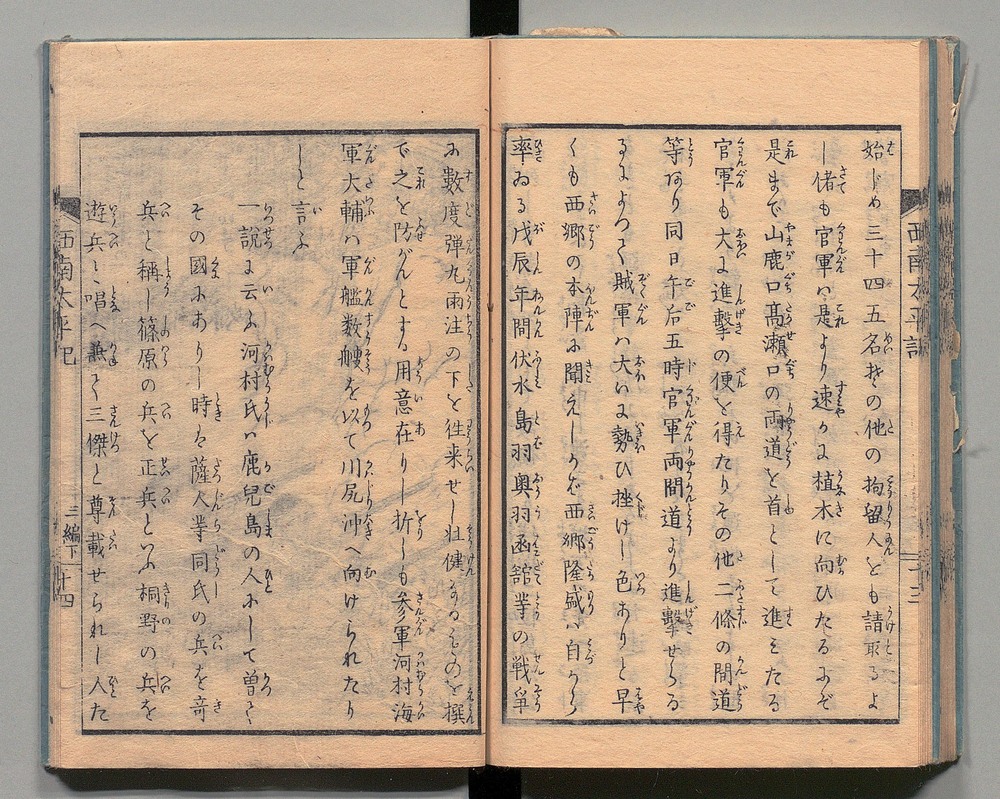 始しめ三十四五名其その他の拘留人をも請取るよ
し偖も官軍ハ是より速かに植木に向ひたるよぞ
是まで山鹿口髙瀬口の両道を首として進みたる
官軍も大に進撃の便を得たりその他二條の間道
等あり同日午后五時官軍両間道より進撃せらる
るによつて賊軍ハ大いに勢ひ挫けし色ありと早
くも西郷の本陣に聞えしかば西郷隆盛ハ自から
率ゐる戊辰年間伏水島羽奥羽函舘等の戦争
に數度弾丸雨注の下を往来せし壮健なるものを撰
で之を防がんとする用意在りし折しも参軍河村海
軍大輔ハ軍艦数艘を以て川尻沖へ向けられたり
しと言ふ
一説に云ふ河村氏ハ鹿兒島の人にして曽て
その國にありし時を薩人等同氏の兵を奇
兵と稱し篠原の兵を正兵といふ桐野の兵を
遊兵と唱へ兼て三傑と尊載せられし人た
西南太平記
三編下
十四